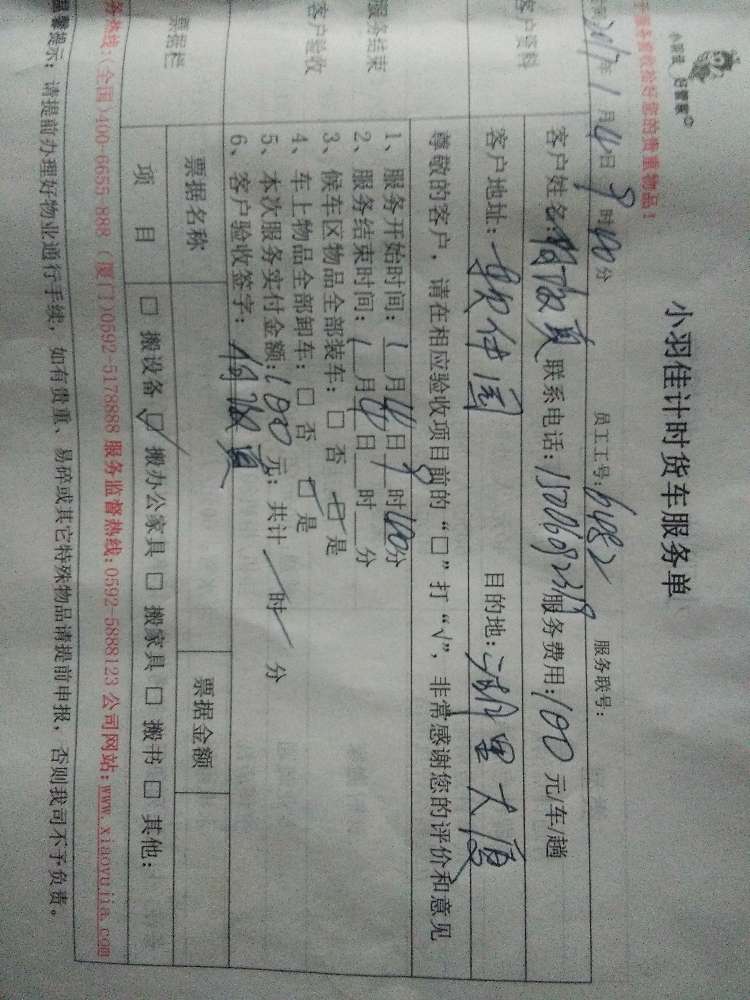 小羽佳 好管家
小羽佳计时货车服务单
服务验收拾好您的贵重物品！
2017年1月4日9时00分 员工工号：6482 服务联号：
客户资料
客户姓名： 联系电话：15006092319 服务费用：100元/车/趟
客户地址： 目的地：湖里大厦
尊敬的客户，请在相应验收项目前的“□”打“√”，非常感谢您的评价和意见
服务结束
客户验收
1、服务开始时间：1月4日9时00分
2、服务结束时间：1月4日 时 分
3、候车区物品全部装车：□ 否 □ 是
4、车上物品全部卸车：□ 否 □ 是
5、本次服务实付金额：100元；共计 时 分
6、客户验收签字：
票据栏
票据名称 票据金额
项 目 □ 搬设备 □ 搬办公家具 □ 搬家具 □ 搬书 □ 其他：
务热线：(全国)400-6655-888 (厦门)0592-5178888 服务监督热线：0592-5888123 公司网站：www.xiaoyujia.com
温馨提示：请提前办理好物业通行手续，如有贵重、易碎或其它特殊物品请提前申报，否则我司不予负责。